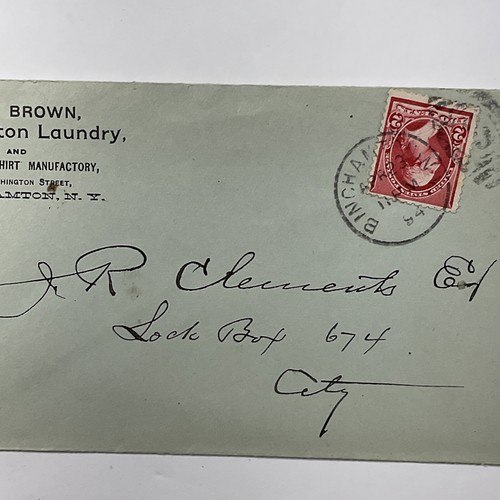 BROWN,
ton Laundry,
AND
HIRT MANUFACTORY,
HINGTON STREET,
AMTON, N. Y.
BINGHAM
94
J R Clements Esq
Lock Box 674
City